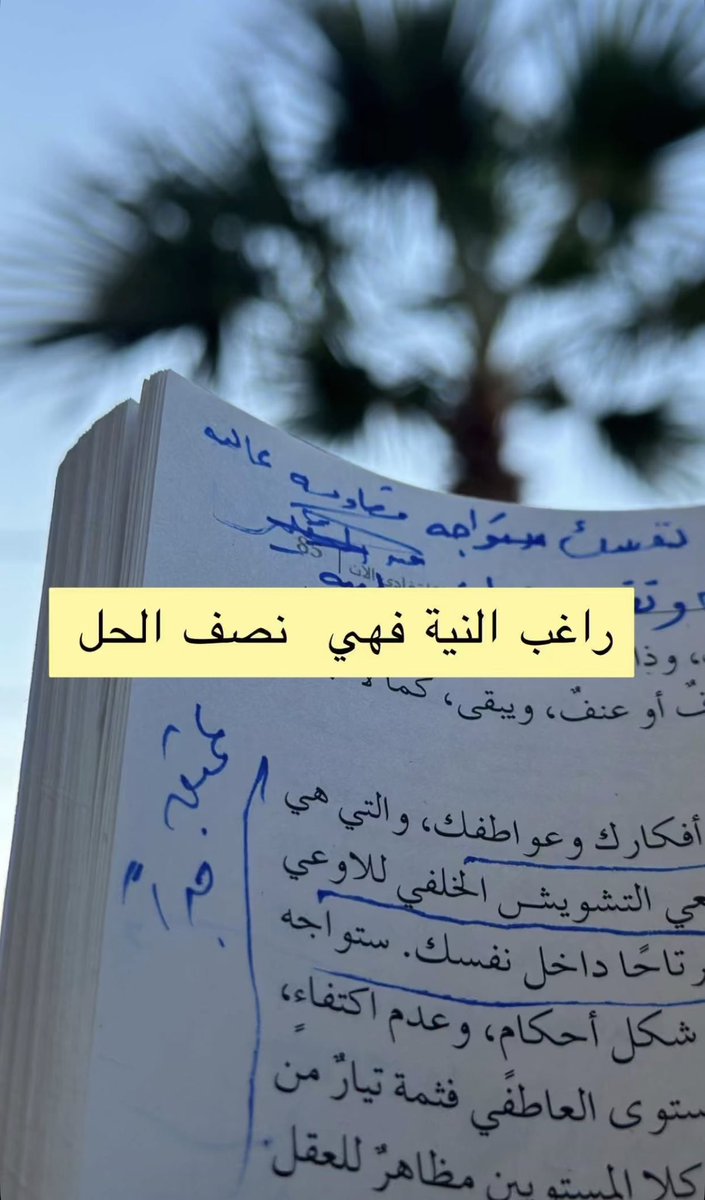 نفسك ستواجه مقاومه عاليه
عند
85
راغب النية فهي نصف الحل
، وذا
فٌ أو عنفٌ، ويبقى، كما
أفكارك وعواطفك، والتي هي
عي التشويش الخلفي للاوعي
رتاحًا داخل نفسك. ستواجه
شكل أحكام، وعدم اكتفاءٍ،
ستوى العاطفي فثمة تيارٌ من
كلا المستويين مظاهرٌ للعقل